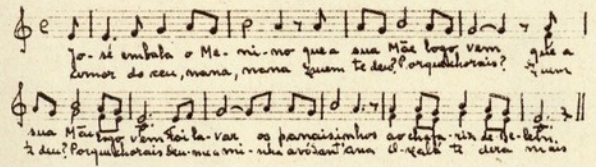 Jo-sé embala o Me-ni-no que a sua Mãe logo vem que a
amor do ceu, nana, nana Quem te deu? Porque chorais? Quem
sua Mãe logo vem Foi la-var os panaisinhos ao chafa-riz de Be-lem.
te deu? Porque chorais Deu-me a mi-nha avó Sant'Ana O-xalá te dera mais